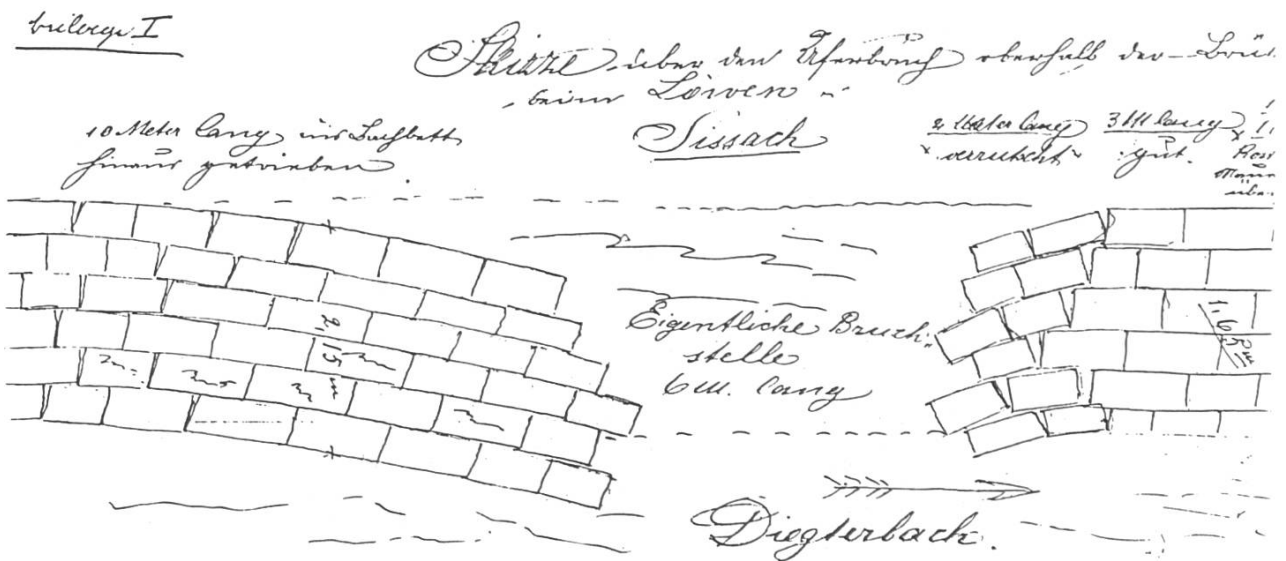 Beilage I
Skizze über den Uferbruch oberhalb der Brü
beim Löwen
Sissach
10 Meter lang ins Bachbett
hinaus getrieben.
2 Meter lang
verrutscht
3 M lang
gut.
Eigentliche Bruch-
stelle
6 m. lang
2,15 m
1,65 m
Diegterbach.